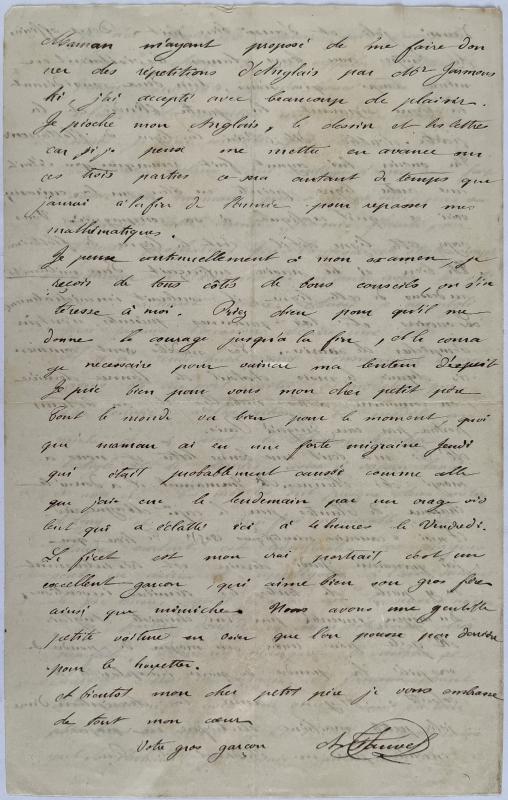 Maman m'ayant proposé de me faire don
ner des répetitions d'Anglais par Mr Jasmons
ki, j'ai accepté avec beaucoup de plaisir.
Je pioche mon Anglais, le dessin et les lettres
car si je peux me mettre en avance sur
ces trois parties ce sera autant de temps que
j'aurai à la fin de l'année pour repasser mes
mathématiques.
Je pense continuellement à mon examen, je
reçois de tous côtés de bons conseils, on s'in
téresse à moi. Priez dieu pour qu'il me
donne le courage jusqu'à la fin, et le coura
ge necessaire pour vaincre ma lenteur d'esprit
Je prie bien pour vous mon cher petit père
Tout le monde va bien pour le moment, quoi
que maman ai eu une forte migraine Jeudi
qui était probablement causée comme celle
que j'ai eue le lendemain par un orage vio
lent qui a éclaté ici à 4 heures le Vendredi.
Le ficet est mon vrai portrait, c'est un
excellent garçon, qui aime bien son gros frère
ainsi que mimiche. Nous avons une gentille
petite voiture en osier que l'on pousse par derrière
pour le
A bientot mon cher petit père je vous embrasse
de tout mon cœur
Votre gros garçon